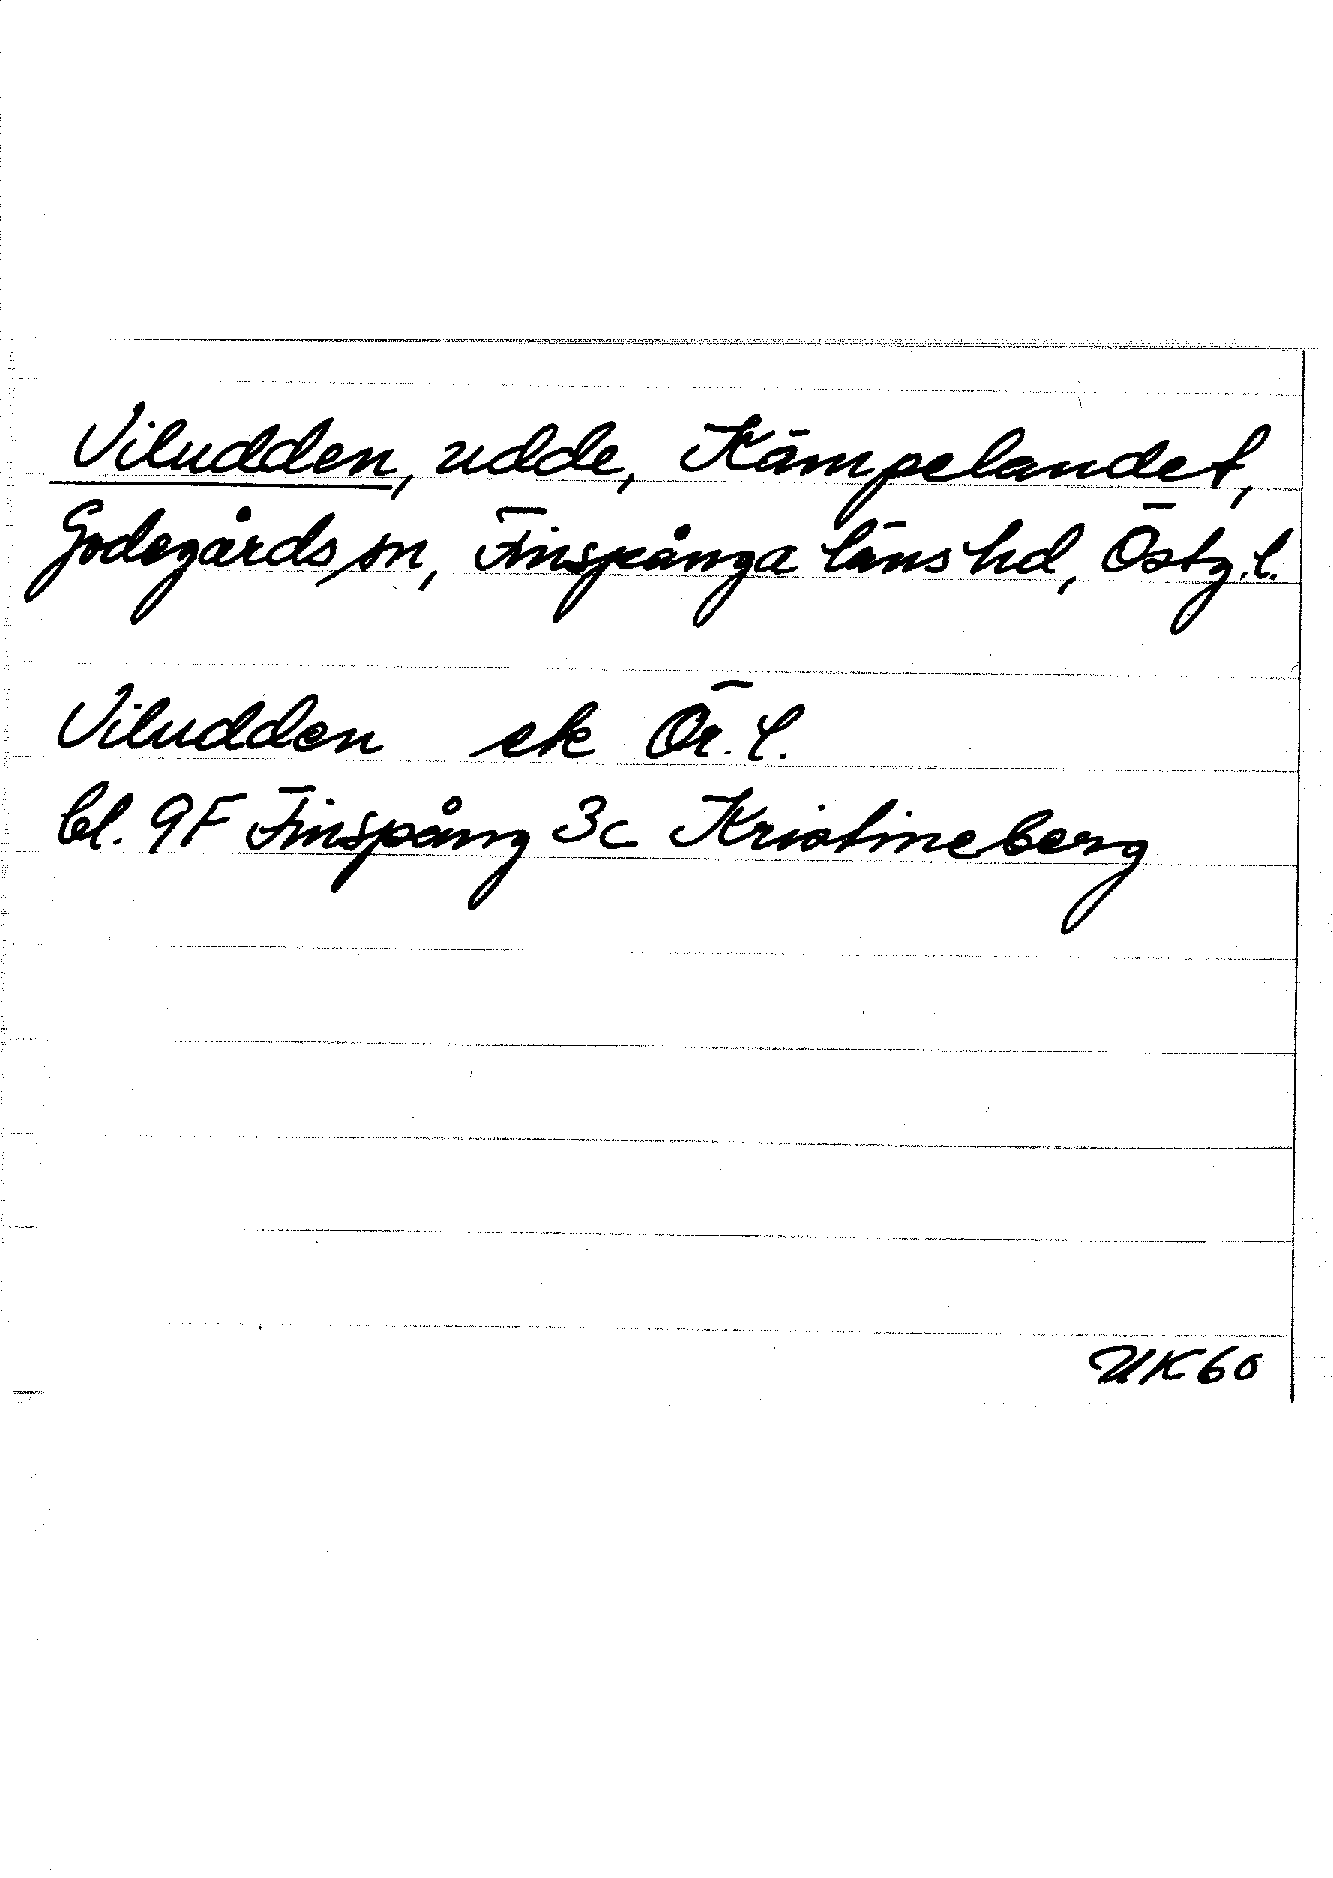 Viludden, udde, Kämpelandet,
Godegårds sn, Finspånga läns hd, Östg. l.
Viludden ek Ör. l.
bl. 9F Finspång 3c Kristineberg
UK60